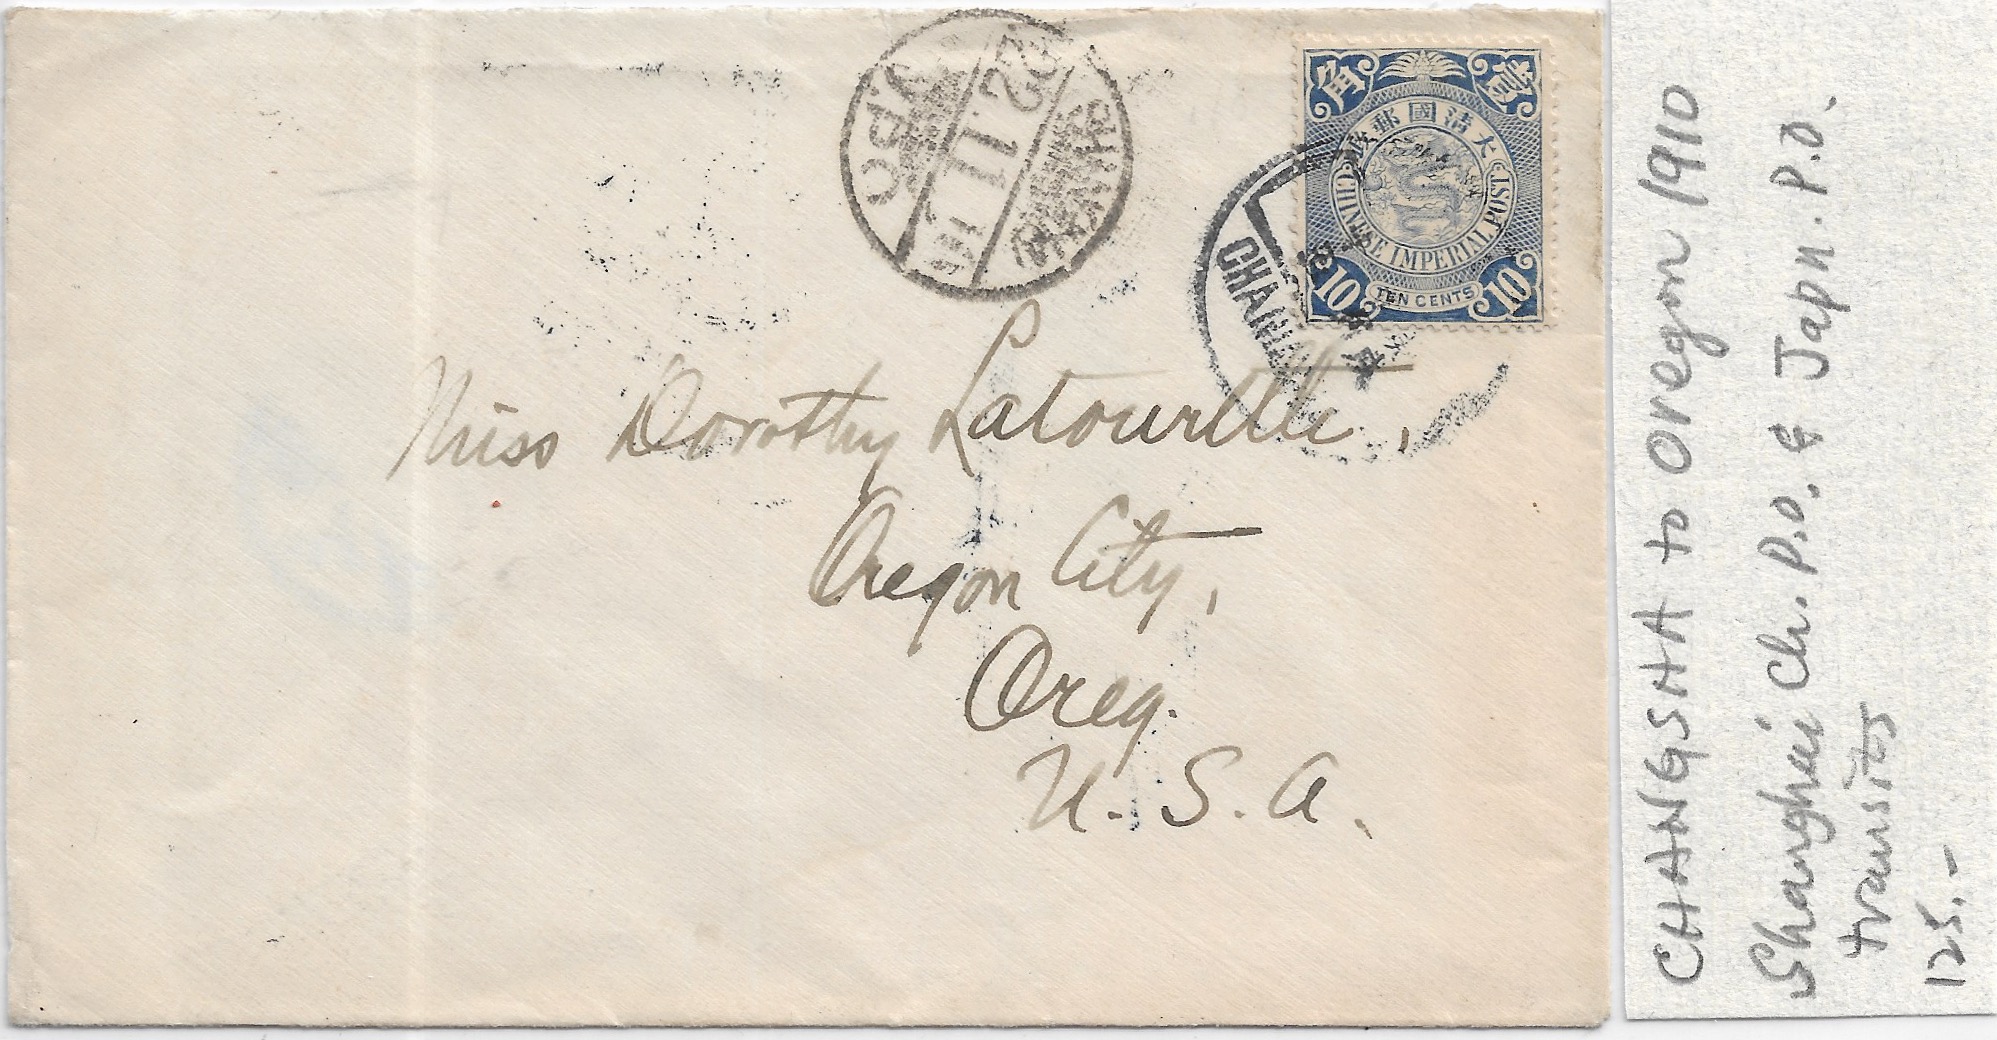 I.J.P.O
22.11.10
SHANGHAI
角 貳
大清國郵政
CHINESE IMPERIAL POST
10 TEN CENTS 10
CHANG
Miss Dorothy Latourette,
Oregon City,
Oreg.
U.S.A.
CHANGSHA to Oregon 1910
Shanghai Ch. P.O. & Japn. P.O.
transits
125.-